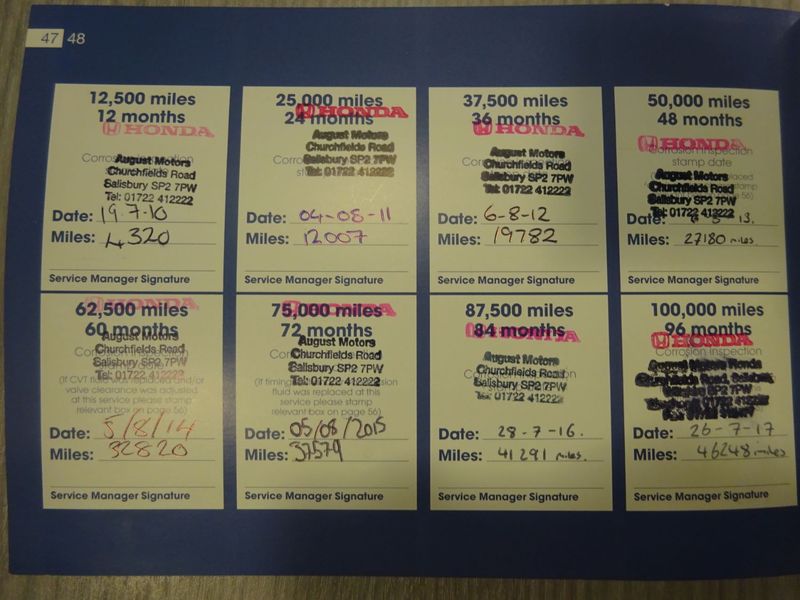 47 48
12,500 miles
12 months
HONDA
August Motors
Churchfields Road
Salisbury SP2 7PW
Tel: 01722 412222
Date: 19.7.10
Miles: 4320
Service Manager Signature
25,000 miles
24 months
HONDA
August Motors
Churchfields Road
Salisbury SP2 7PW
Tel: 01722 412222
Date: 04-08-11
Miles: 12007
Service Manager Signature
37,500 miles
36 months
HONDA
August Motors
Churchfields Road
Salisbury SP2 7PW
Tel: 01722 412222
Date: 6-8-12
Miles: 19782
Service Manager Signature
50,000 miles
48 months
HONDA
Corrosion Inspection
stamp date
August Motors
Churchfields Road
Salisbury SP2 7PW
Tel: 01722 412222
Date: 13.
Miles: 27180 miles.
Service Manager Signature
62,500 miles
60 months
HONDA
August Motors
Churchfields Road
Salisbury SP2 7PW
Tel: 01722 412222
(If CVT fluid was replaced and/or
valve clearance was adjusted
at this service please stamp
relevant box on page 56)
Date: 5/8/14
Miles: 32820
Service Manager Signature
75,000 miles
72 months
HONDA
August Motors
Churchfields Road
Salisbury SP2 7PW
Tel: 01722 412222
fluid was replaced at this
service please stamp
relevant box on page 56)
Date: 05/08/2015
Miles: 37579
Service Manager Signature
87,500 miles
84 months
HONDA
August Motors
Churchfields Road
Salisbury SP2 7PW
Tel: 01722 412222
Date: 28-7-16.
Miles: 41291 miles.
Service Manager Signature
100,000 miles
96 months
HONDA
Corrosion Inspection
Date: 26-7-17
Miles: 46248 miles
Service Manager Signature